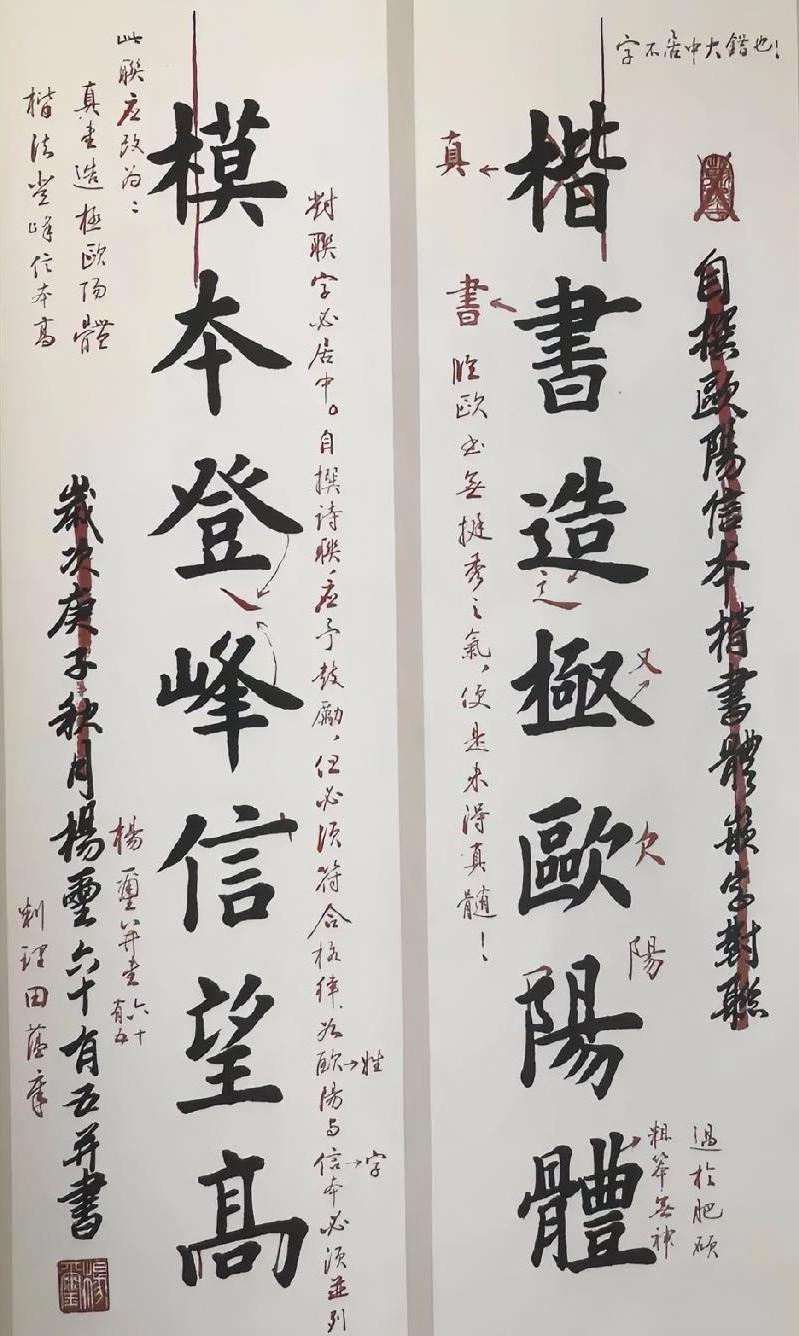 字不居中大錯也!
自撰歐陽信本楷書體嵌字對聯
楷書造極歐陽體
真
書
臨歐書無挺秀之氣,便是未得真髓!
辶
又
欠
陽
過於肥碩
粗笨無神
對聯字必居中。自撰詩聯,應予鼓勵,但必須符合格律,如歐陽與信本必須並列
姓
字
模本登峰信望高
此聯應改為:
真書造極歐陽體
楷法登峰信本高
歲次庚子秋月楊璽六十有五并書
楊璽并書
六十
有五
田蘊章
楊璽